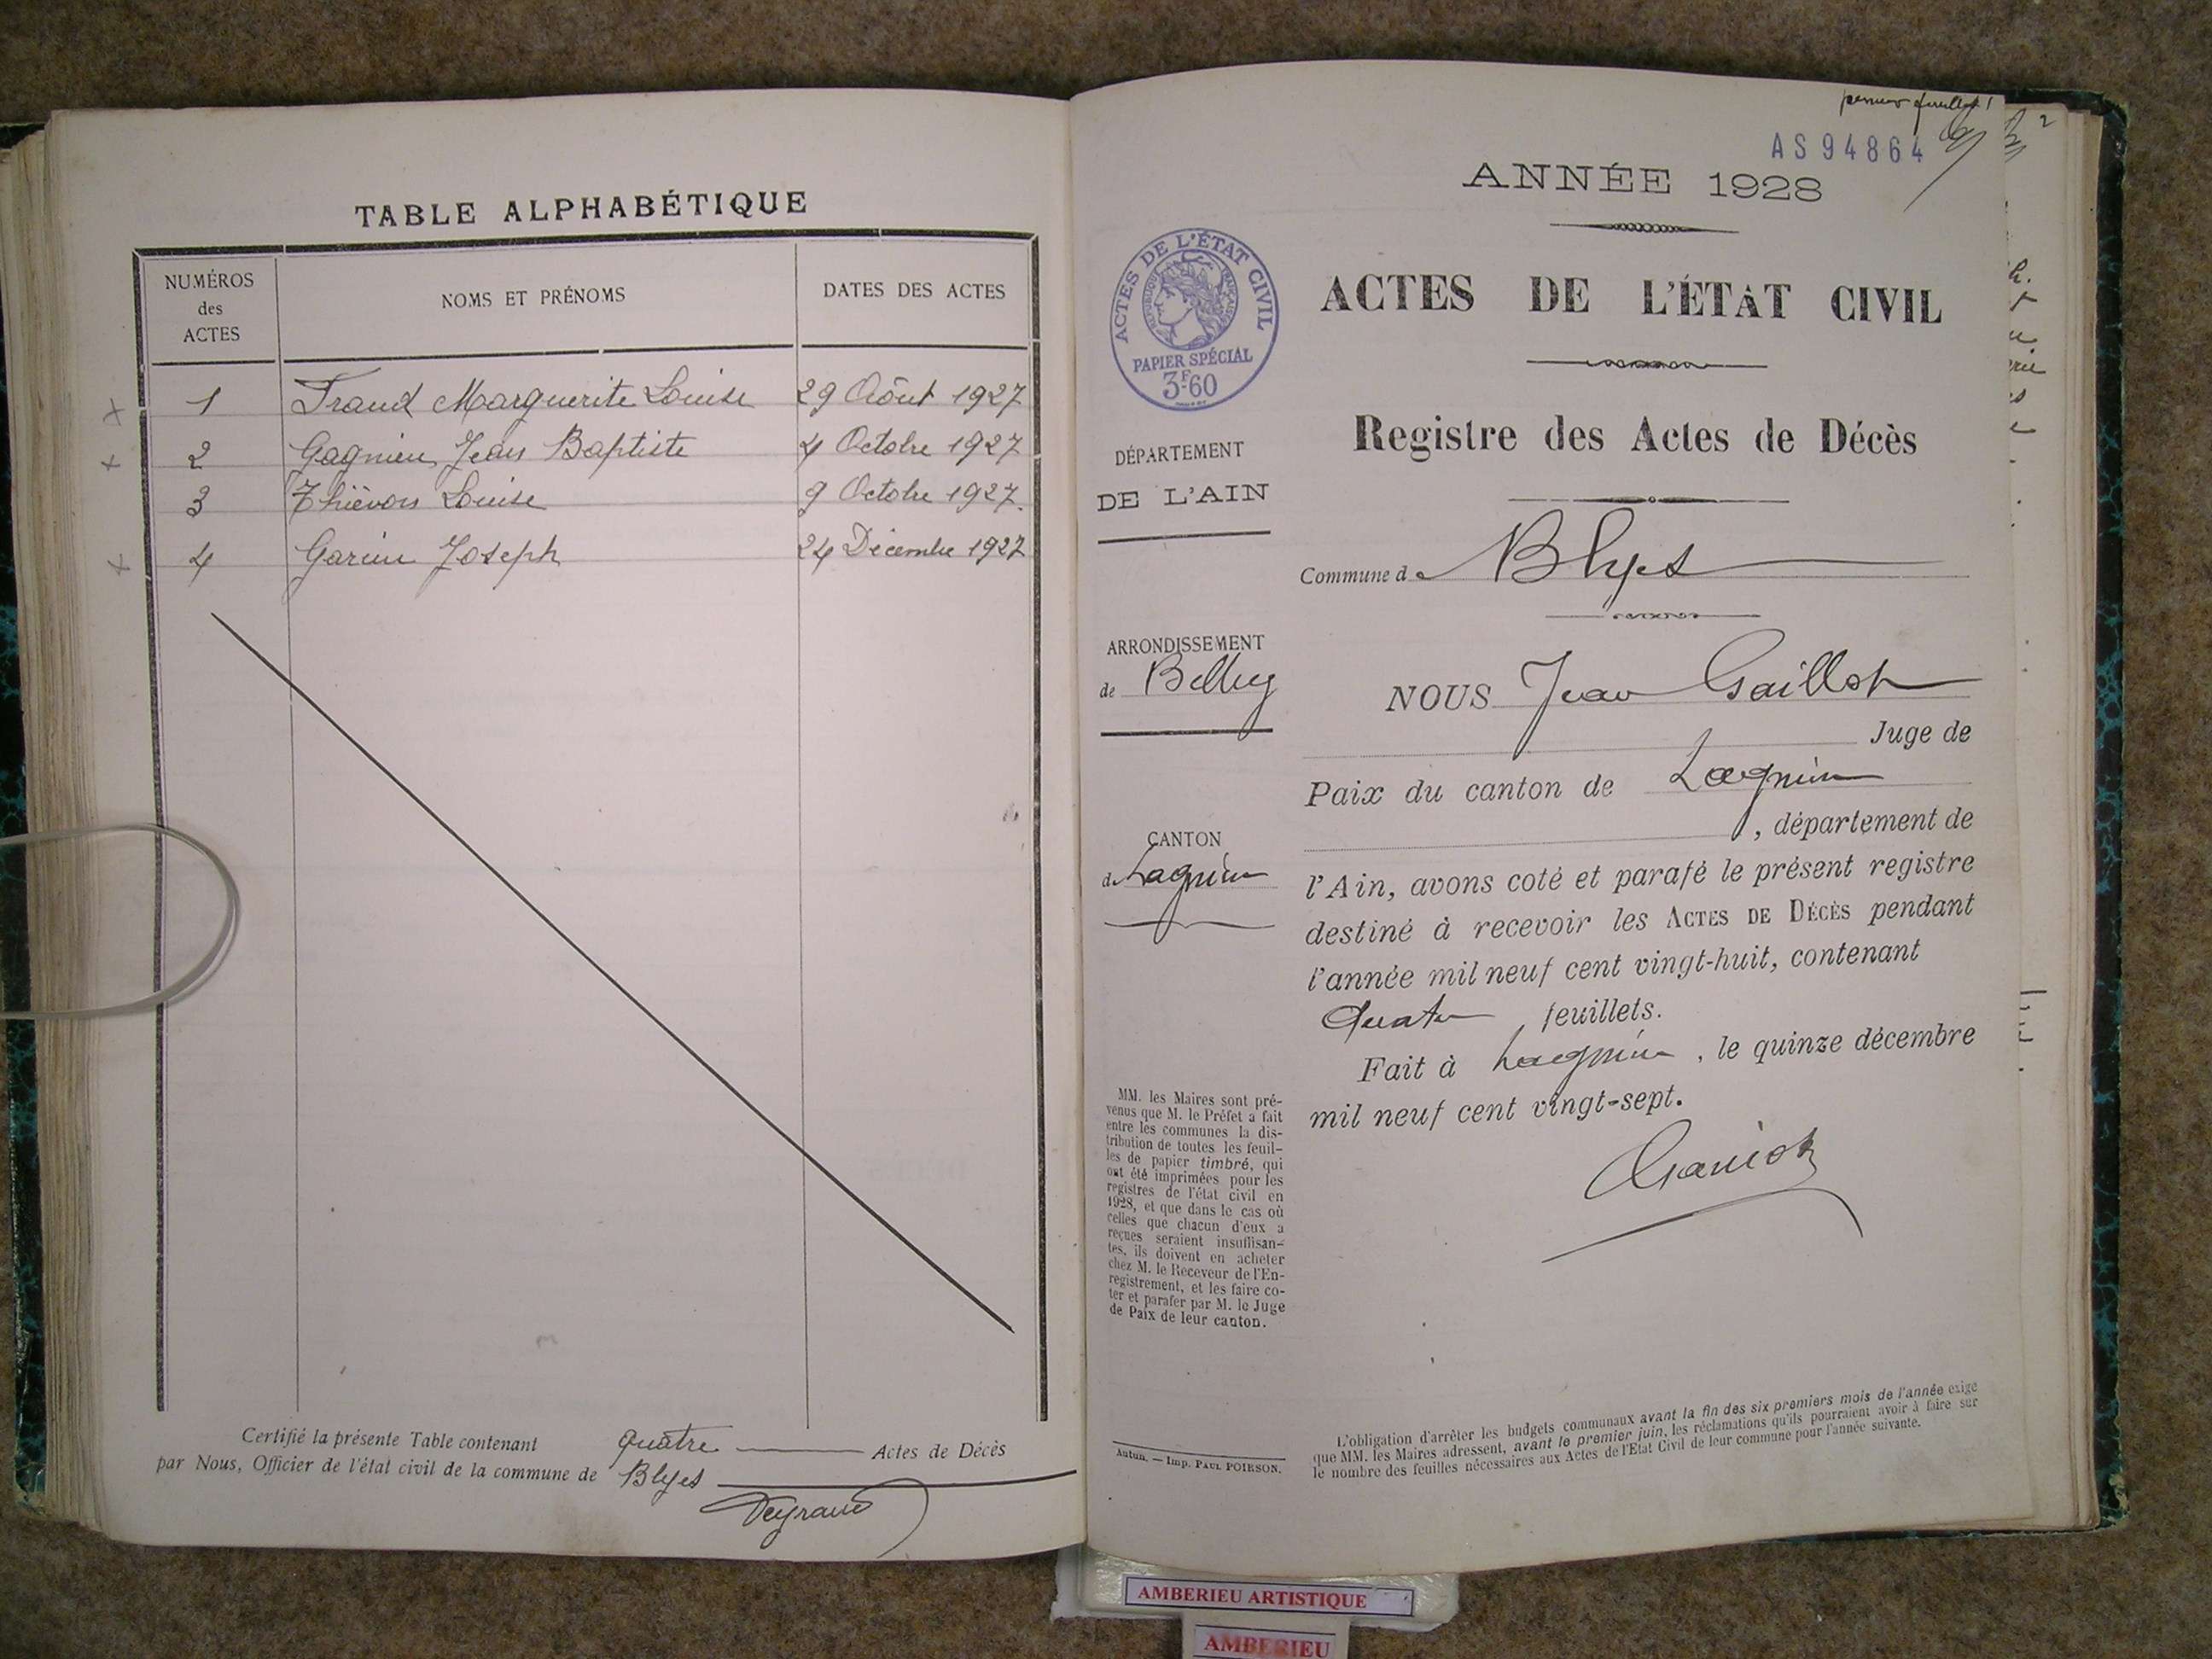 TABLE ALPHABÉTIQUE
NUMÉROS
des
ACTES
NOMS ET PRÉNOMS
DATES DES ACTES
1 Marguerite Louise 29 Août 1927
2 Gagnieu Jean Baptiste 4 Octobre 1927
3 Thiévon Louise 9 Octobre 1927.
4 Garin Joseph 24 Décembre 1927
Certifié la présente Table contenant quatre Actes de Décès
par Nous, Officier de l'état civil de la commune de Blyes
Peyraud
premier feuillet 1
2
AS94864
ANNÉE 1928
ACTES DE L'ÉTAT CIVIL
RÉPUBLIQUE FRANÇAISE
PAPIER SPÉCIAL
3F60
ACTES DE L'ÉTAT CIVIL
Registre des Actes de Décès
DÉPARTEMENT
DE L'AIN
Commune de Blyes
ARRONDISSEMENT
de Belley
NOUS Jean Gaillot
Juge de
Paix du canton de Lagnieu
, département de
CANTON
de Lagnieu
l'Ain, avons coté et parafé le présent registre
destiné à recevoir les ACTES DE DÉCÈS pendant
l'année mil neuf cent vingt-huit, contenant
Quatre feuillets.
Fait à Lagnieu, le quinze décembre
mil neuf cent vingt-sept.
MM. les Maires sont pré-
venus que M. le Préfet a fait
entre les communes la dis-
tribution de toutes les feuil-
les de papier timbré, qui
ont été imprimées pour les
registres de l'état civil en
1928, et que dans le cas où
celles que chacun d'eux a
reçues seraient insuffisan-
tes, ils doivent en acheter
chez M. le Receveur de l'En-
registrement, et les faire co-
ter et parafer par M. le Juge
de Paix de leur canton.
Autun. — Imp. PAUL POIRSON.
L'obligation d'arrêter les budgets communaux avant la fin des six premiers mois de l'année exige
que MM. les Maires adressent, avant le premier juin, les réclamations qu'ils pourraient avoir à faire sur
le nombre des feuilles nécessaires aux Actes de l'Etat Civil de leur commune pour l'année suivante.
AMBERIEU ARTISTIQUE
AMBERIEU